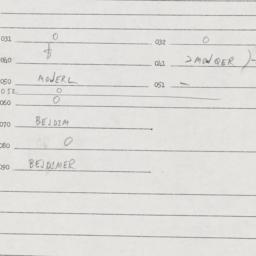 031 0 032 0
040 $ 041
050 MONERL 051 -
052 0
060 0
070 BEJDIM
080 0
090 BEJDIMER